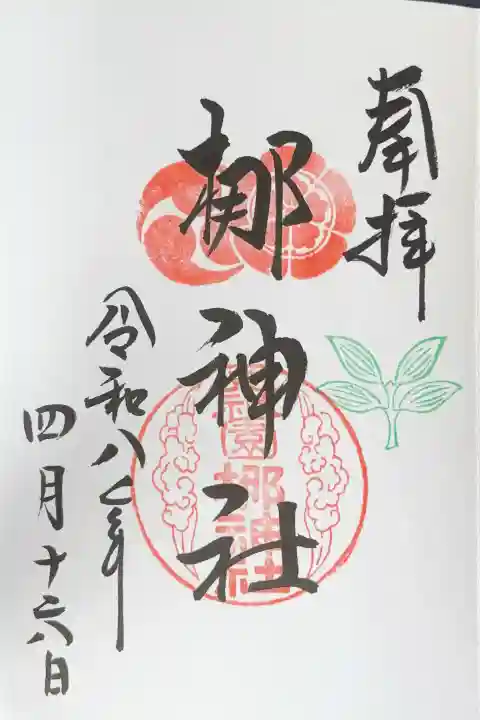 奉拝
梛神社
令和八年
四月十六日
園
梛神社